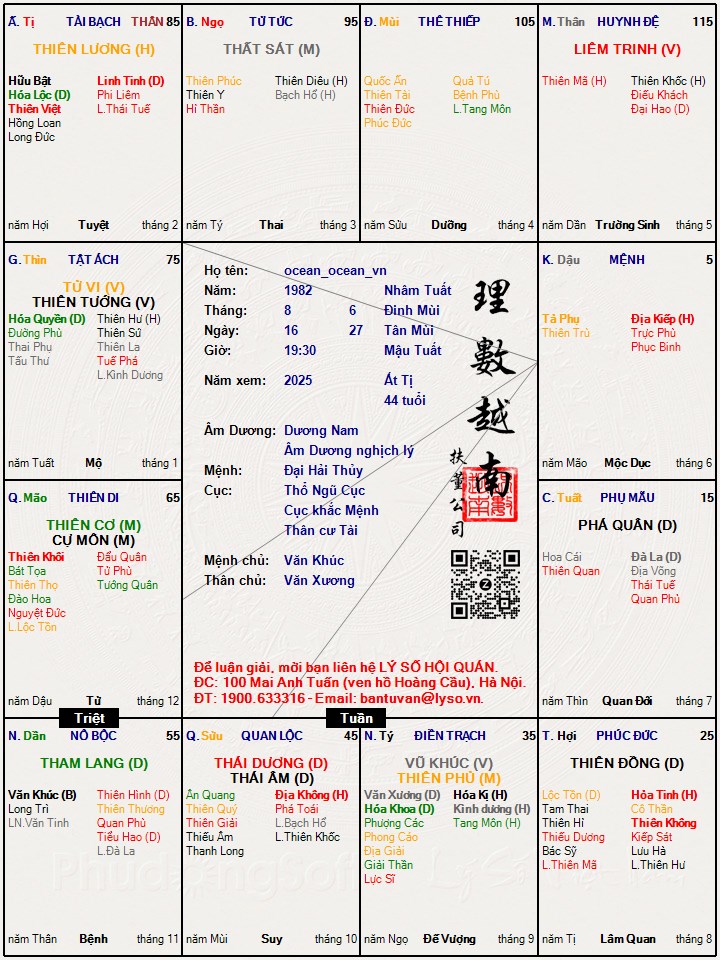 Ấ. Tị TÀI BẠCH THÂN 85
THIÊN LƯƠNG (H)
Hữu Bật Linh Tinh (D)
Hóa Lộc (D) Phi Liêm
Thiên Việt L.Thái Tuế
Hồng Loan
Long Đức
năm Hợi Tuyệt tháng 2
B. Ngọ TỬ TỨC 95
THẤT SÁT (M)
Thiên Phúc Thiên Diêu (H)
Thiên Y Bạch Hổ (H)
Hỉ Thần
năm Tý Thai tháng 3
Đ. Mùi THÊ THIẾP 105
Quốc Ấn Quả Tú
Thiên Tài Bệnh Phù
Thiên Đức L.Tang Môn
Phúc Đức
năm Sửu Dưỡng tháng 4
M. Thân HUYNH ĐỆ 115
LIÊM TRINH (V)
Thiên Mã (H) Thiên Khốc (H)
Điếu Khách
Đại Hao (D)
năm Dần Trường Sinh tháng 5
G. Thìn TẬT ÁCH 75
TỬ VI (V)
THIÊN TƯỚNG (V)
Hóa Quyền (D) Thiên Hư (H)
Đường Phù Thiên Sứ
Thai Phụ Thiên La
Tấu Thư Tuế Phá
L.Kình Dương
năm Tuất Mộ tháng 1
Họ tên: ocean_ocean_vn
Năm: 1982 Nhâm Tuất
Tháng: 8 6 Đinh Mùi
Ngày: 16 27 Tân Mùi
Giờ: 19:30 Mậu Tuất
Năm xem: 2025 Ất Tị
44 tuổi
Âm Dương: Dương Nam
Âm Dương nghịch lý
Mệnh: Đại Hải Thủy
Cục: Thổ Ngũ Cục
Cục khắc Mệnh
Thân cư Tài
Mệnh chủ: Văn Khúc
Thân chủ: Văn Xương
理數越南
扶董公司
Để luận giải, mời bạn liên hệ LÝ SỐ HỘI QUÁN.
ĐC: 100 Mai Anh Tuấn (ven hồ Hoàng Cầu), Hà Nội.
ĐT: 1900.633316 - Email: bantuvan@lyso.vn.
K. Dậu MỆNH 5
Tả Phụ Địa Kiếp (H)
Thiên Trù Trực Phù
Phục Binh
năm Mão Mộc Dục tháng 6
Q. Mão THIÊN DI 65
THIÊN CƠ (M)
CỰ MÔN (M)
Thiên Khôi Đẩu Quân
Bát Tọa Tử Phù
Thiên Thọ Tướng Quân
Đào Hoa
Nguyệt Đức
L.Lộc Tồn
năm Dậu Tử tháng 12
C. Tuất PHỤ MẪU 15
PHÁ QUÂN (D)
Hoa Cái Đà La (D)
Thiên Quan Địa Võng
Thái Tuế
Quan Phủ
năm Thìn Quan Đới tháng 7
Triệt
Tuần
N. Dần NÔ BỘC 55
THAM LANG (D)
Văn Khúc (B) Thiên Hình (D)
Long Trì Thiên Thương
LN.Văn Tinh Quan Phù
Tiểu Hao (D)
L.Đà La
năm Thân Bệnh tháng 11
Q. Sửu QUAN LỘC 45
THÁI DƯƠNG (D)
THÁI ÂM (D)
Ân Quang Địa Không (H)
Thiên Quý Phá Toái
Thiên Giải L.Bạch Hổ
Thiếu Âm L.Thiên Khốc
Thanh Long
năm Mùi Suy tháng 10
N. Tý ĐIỀN TRẠCH 35
VŨ KHÚC (V)
THIÊN PHỦ (M)
Văn Xương (D) Hóa Kị (H)
Hóa Khoa (D) Kình dương (H)
Phượng Các Tang Môn (H)
Phong Cáo
Địa Giải
Giải Thần
Lực Sĩ
năm Ngọ Đế Vượng tháng 9
T. Hợi PHÚC ĐỨC 25
THIÊN ĐỒNG (D)
Lộc Tồn (D) Hỏa Tinh (H)
Tam Thai Cô Thần
Thiên Hỉ Thiên Không
Thiếu Dương Kiếp Sát
Bác Sỹ Lưu Hà
L.Thiên Mã L.Thiên Hư
năm Tị Lâm Quan tháng 8